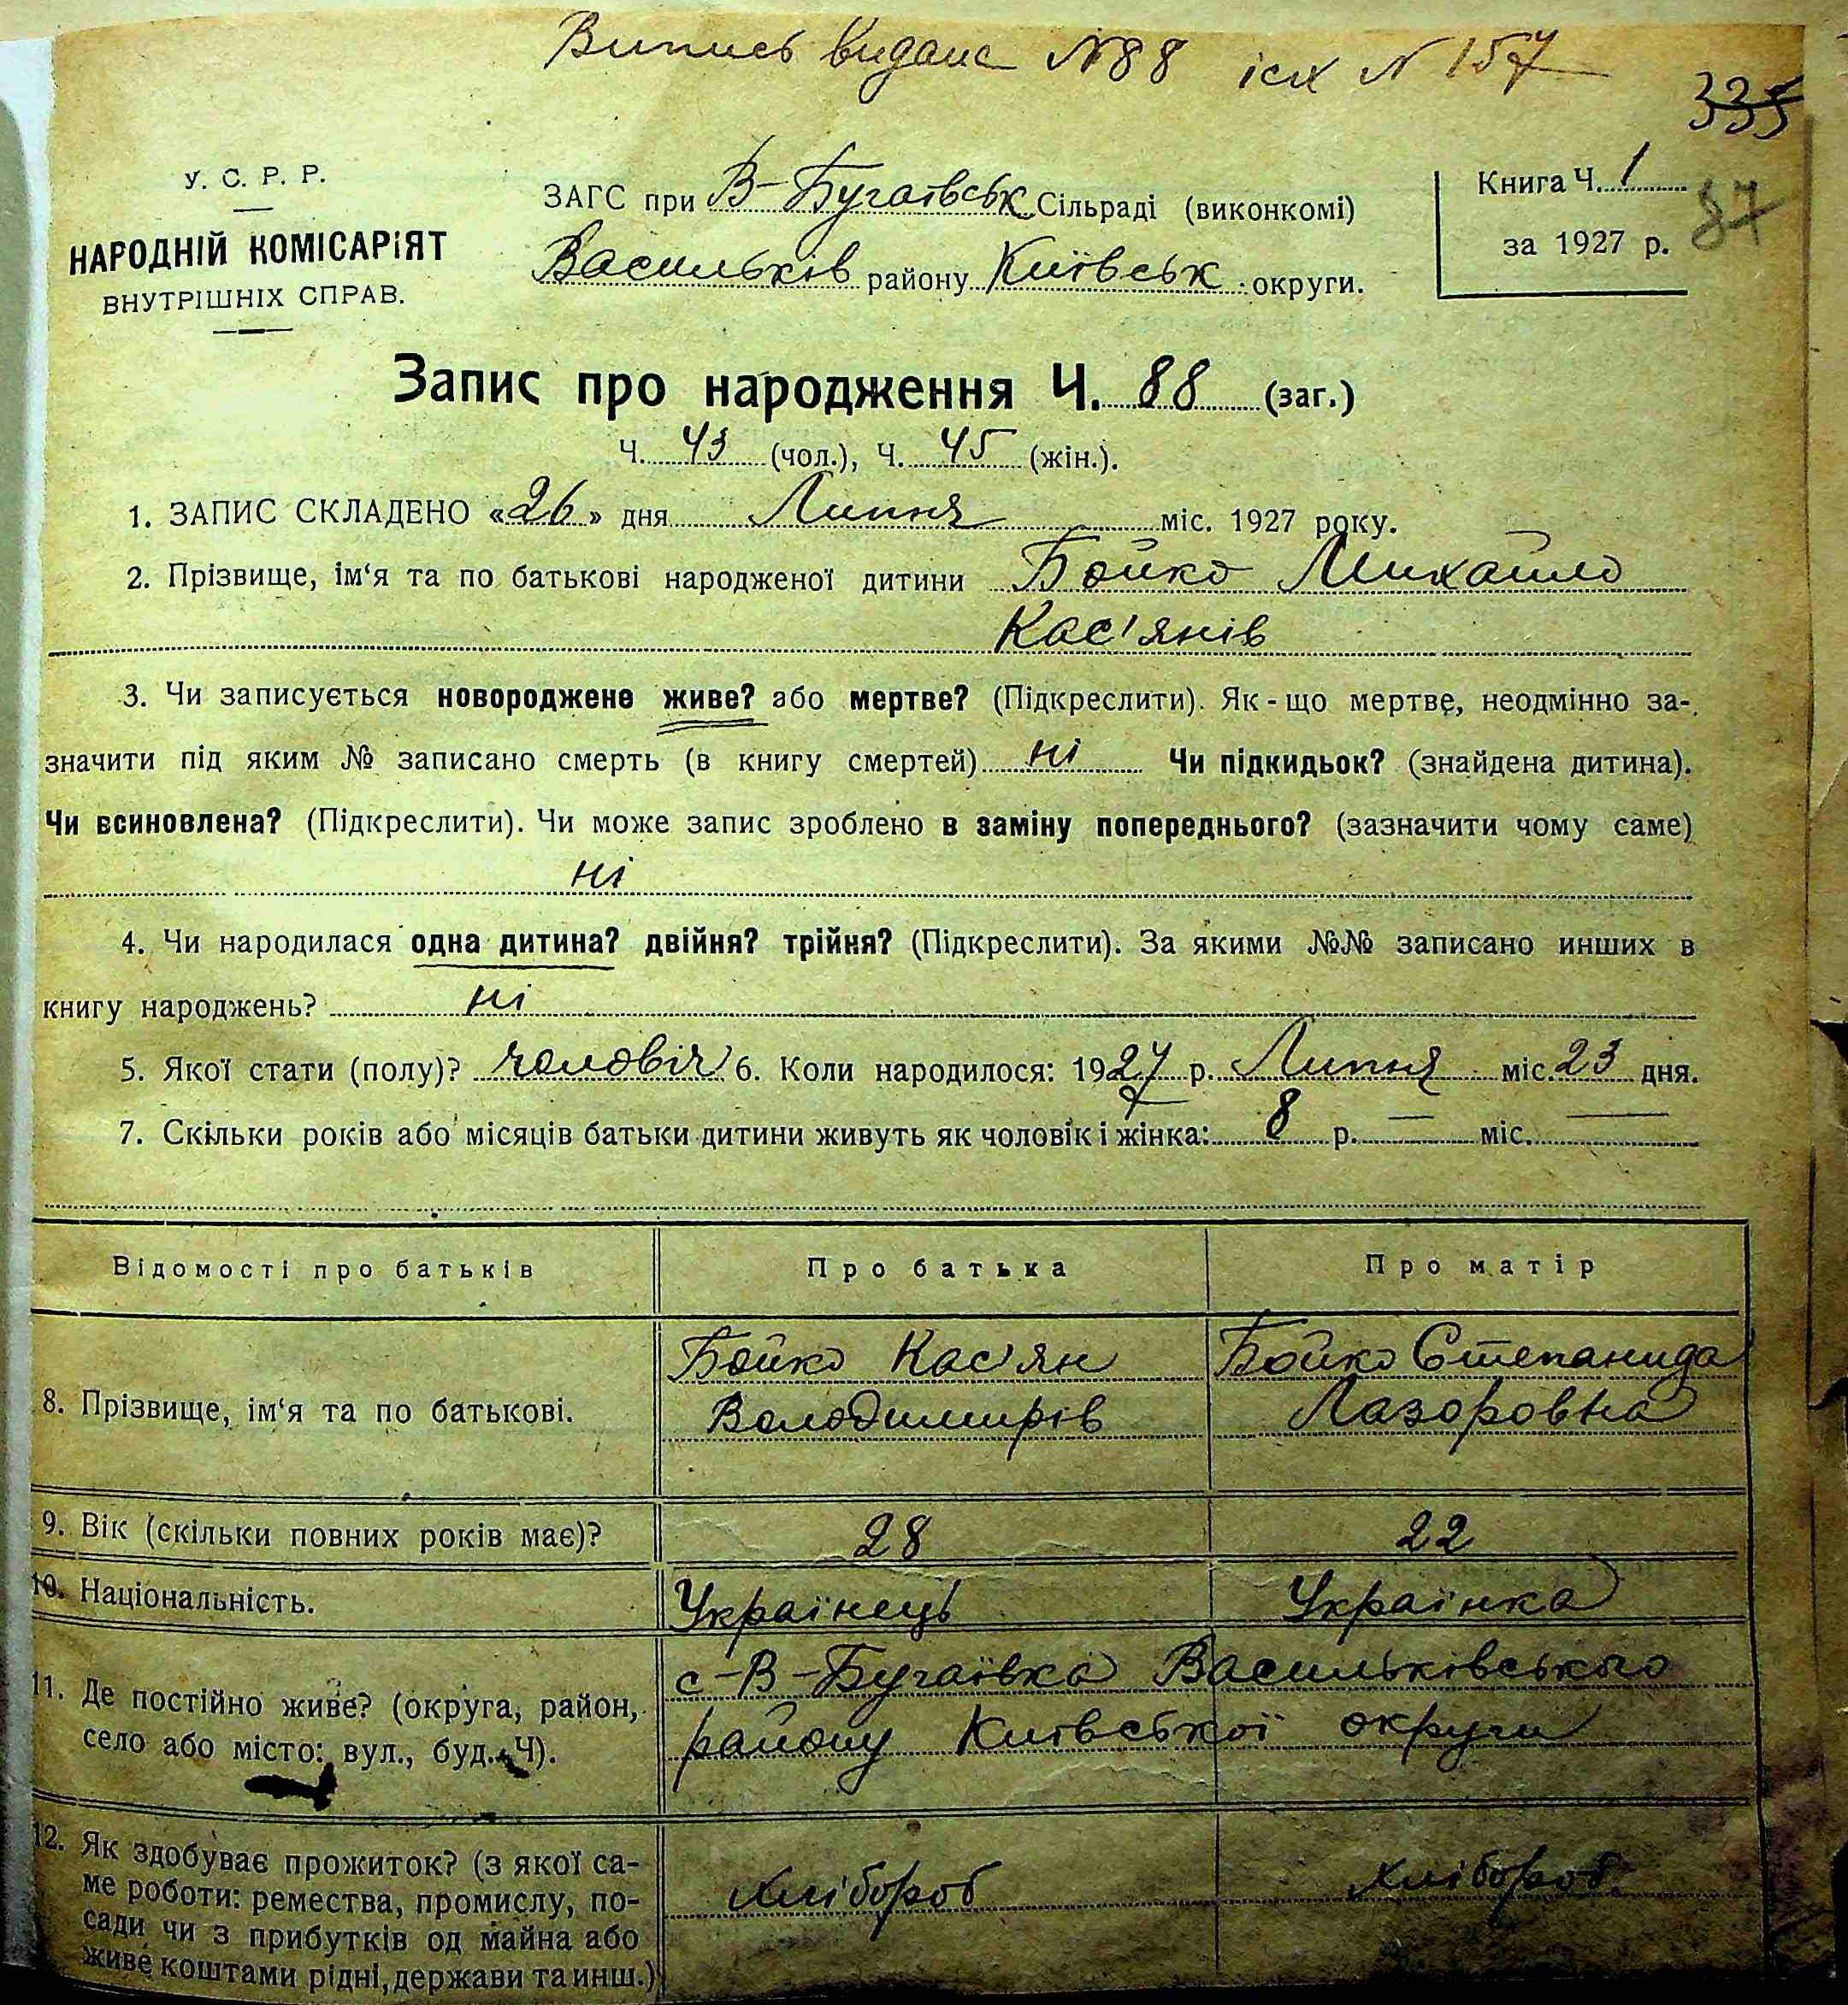 Випись видана №88 ісх № 157
335
У. С. Р. Р.
НАРОДНІЙ КОМІСАРІЯТ
ВНУТРІШНІХ СПРАВ.
ЗАГС при В-Бугаївськ Сільраді (виконкомі)
Васильків району Київськ округи.
Книга Ч. 1
за 1927 р.
87
Запис про народження Ч. 88 (заг.)
Ч. 43 (чол.), Ч. 45 (жін.).
1. ЗАПИС СКЛАДЕНО «26» дня Липня міс. 1927 року.
2. Прізвище, ім‘я та по батькові народженої дитини Бойко Михайло
Кас'янів
3. Чи записується новороджене живе? або мертве? (Підкреслити). Як-що мертве, неодмінно за-
значити під яким № записано смерть (в книгу смертей) ні Чи підкидьок? (знайдена дитина).
Чи всиновлена? (Підкреслити). Чи може запис зроблено в заміну попереднього? (зазначити чому саме)
ні
4. Чи народилася одна дитина? двійня? трійня? (Підкреслити). За якими №№ записано инших в
книгу народжень? ні
5. Якої стати (полу)? чоловіч 6. Коли народилося: 1927 р. Липня міс. 23 дня.
7. Скільки років або місяців батьки дитини живуть як чоловік і жінка: 8 р. — міс. —
Відомості про батьків Про батька Про матір
8. Прізвище, ім‘я та по батькові. Бойко Кас'ян Бойко Степанида
Володимирів Лазоровна
9. Вік (скільки повних років має)? 28 22
10. Національність. Украінець Украінка
11. Де постійно живе? (округа, район, с-В-Бугаівка Васильківського
село або місто: вул., буд. Ч). району Київської округи
12. Як здобуває прожиток? (з якої са-
ме роботи: ремества, промислу, по- хлібороб хлібороб
сади чи з прибутків од майна або
живе коштами рідні, держави та инш.)